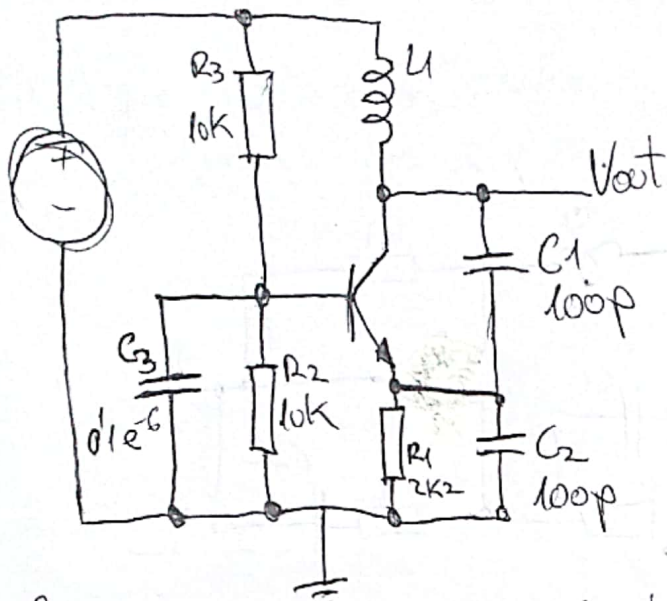 R3
10K
L1
Vout
+
-
C1
100p
C3
0'1e^-6
R2
10K
R1
2K2
C2
100p